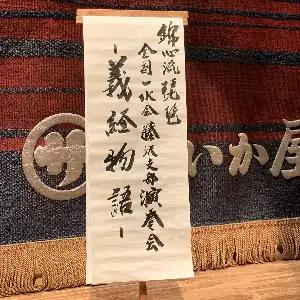 錦心流琵琶
全国一水会藤沢支部演奏会
－義経物語－
サ いか屋